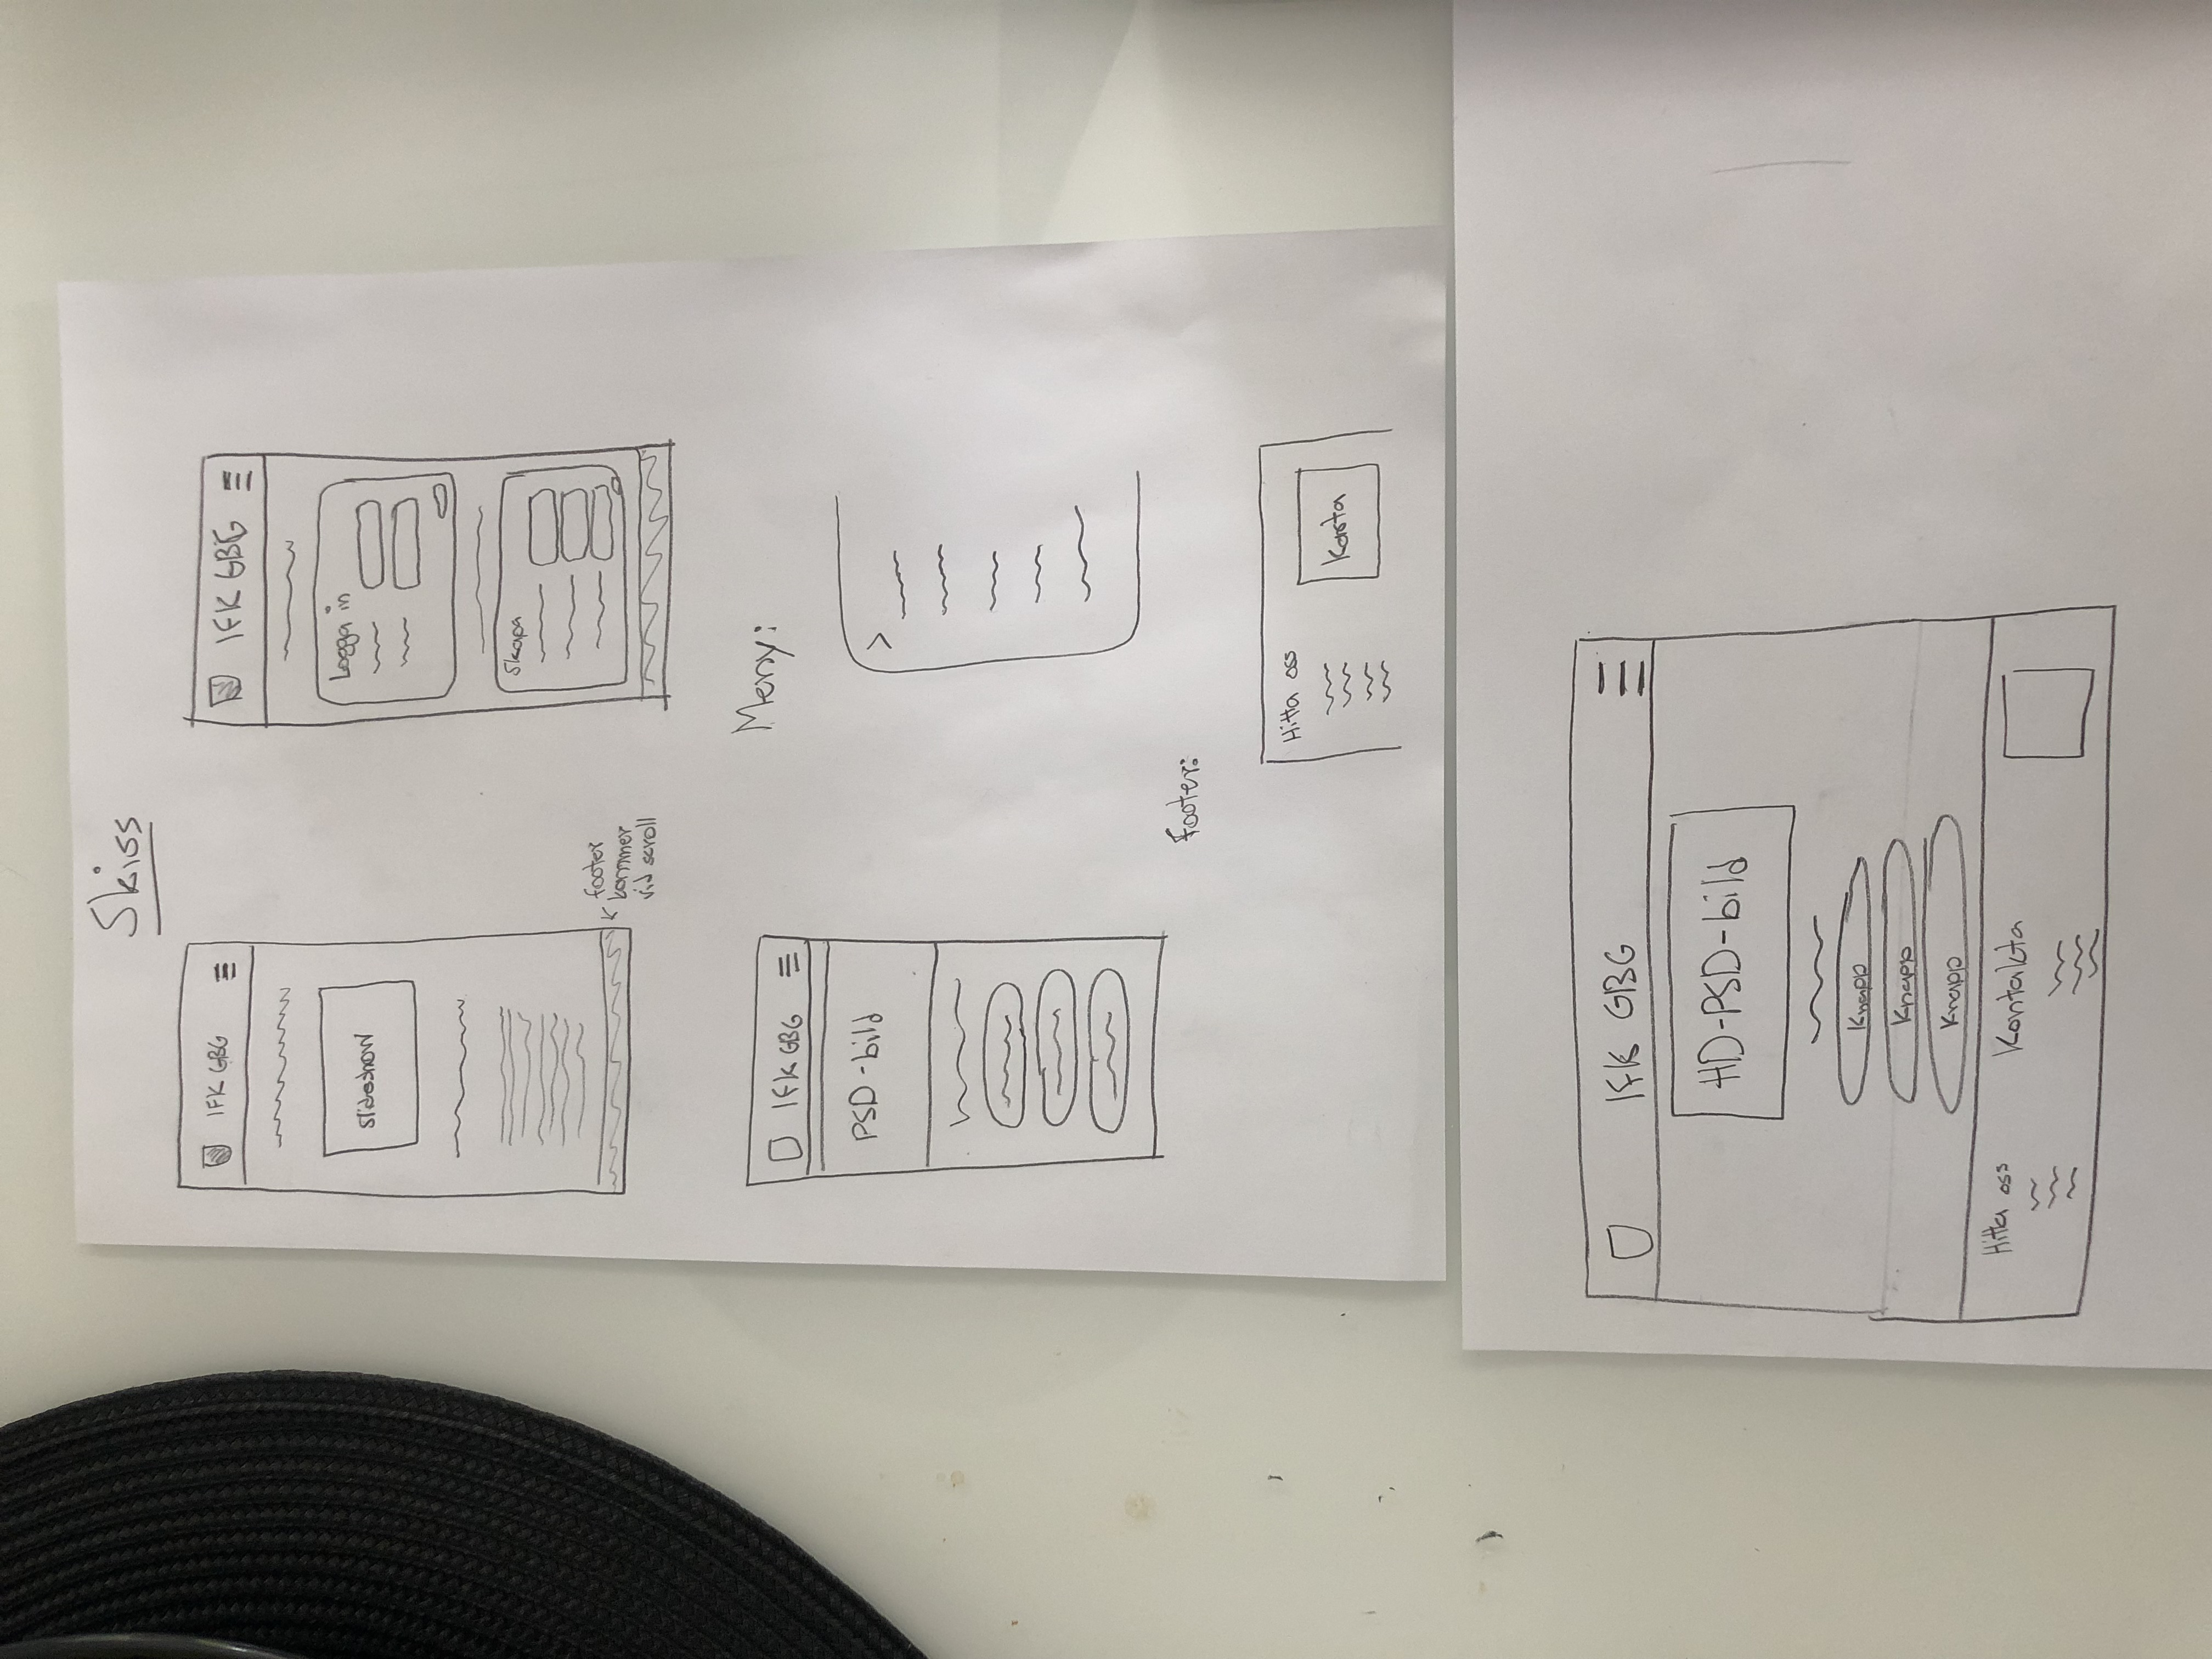 Skiss
IFK GBG
slideshow
footer
kommer
vid scroll
IFK GBG
Logga in
Skapa
IFK GBG
PSD-bild
Meny:
Footer:
Hitta oss
Karta
IFK GBG
HD-PSD-bild
Knapp
Knapp
Knapp
Hitta oss
Kontakta